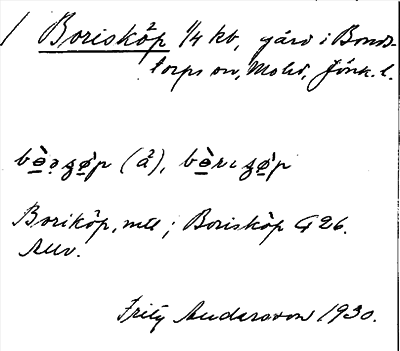 / Borisköp 1/4 kb, gård i Bonds-
torps sn, Mohd, Jönk. l.
bo̱ӡo̱p (ỏ), bo̱rıgo̱p
Boriköp, mtl ; Borisköp G 26.
Allv.
Fritz Andersson 1930.